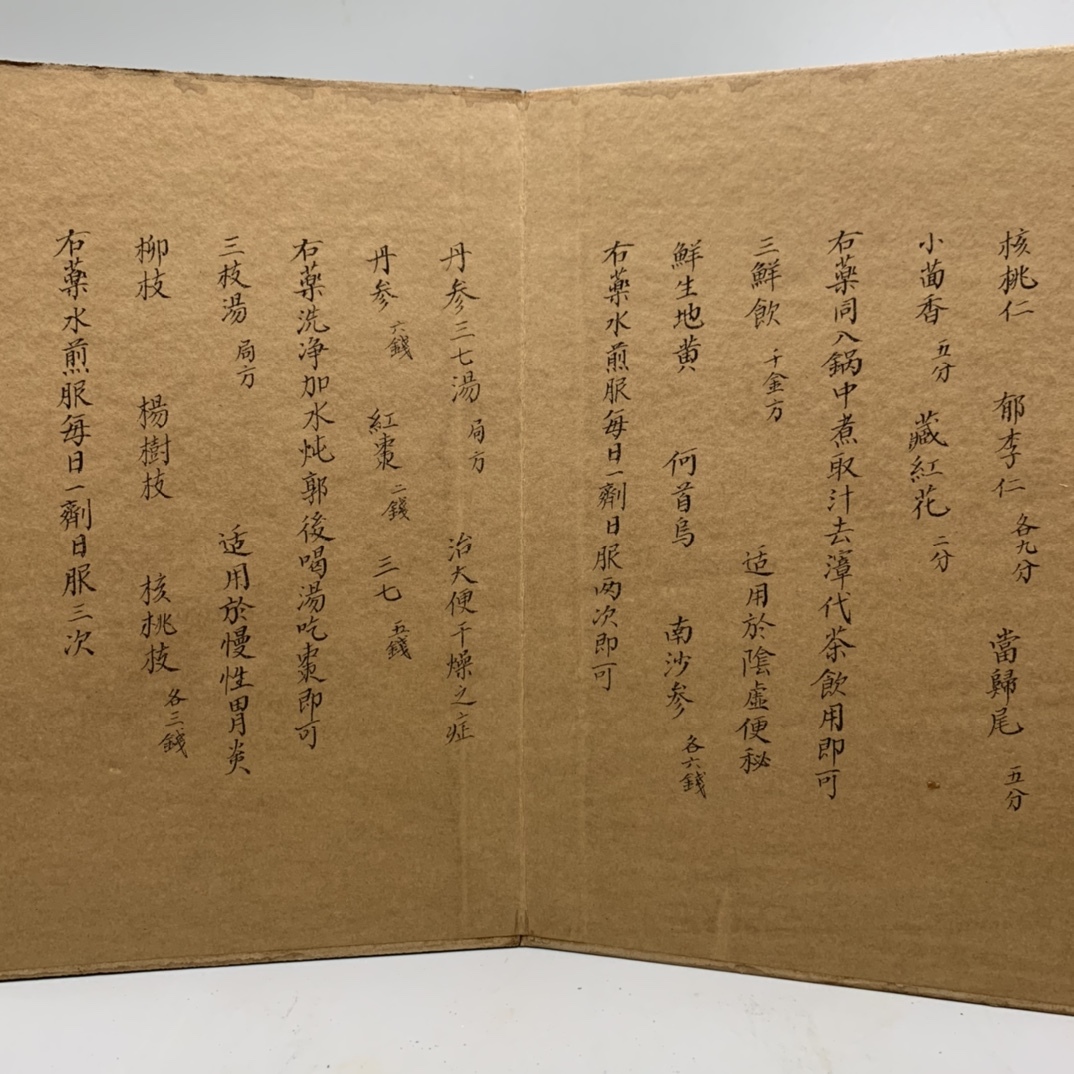 核桃仁 郁李仁 各九分 當歸尾 五分
小茴香 五分 藏紅花 二分
右藥同入鍋中煮取汁去漳代茶飲用即可
三鮮飲 千金方 适用於陰虛便秘
鮮生地黄 何首烏 南沙参 各六錢
右藥水煎服每日一劑日服两次即可
丹参三七湯 局方 治大便干燥之症
丹参 六錢 紅棗 二錢 三七 五錢
右藥洗净加水炖郭後喝湯吃棗即可
三枝湯 局方 适用於慢性胃炎
柳枝 楊樹枝 核桃枝 各三錢
右藥水煎服每日一劑日服三次